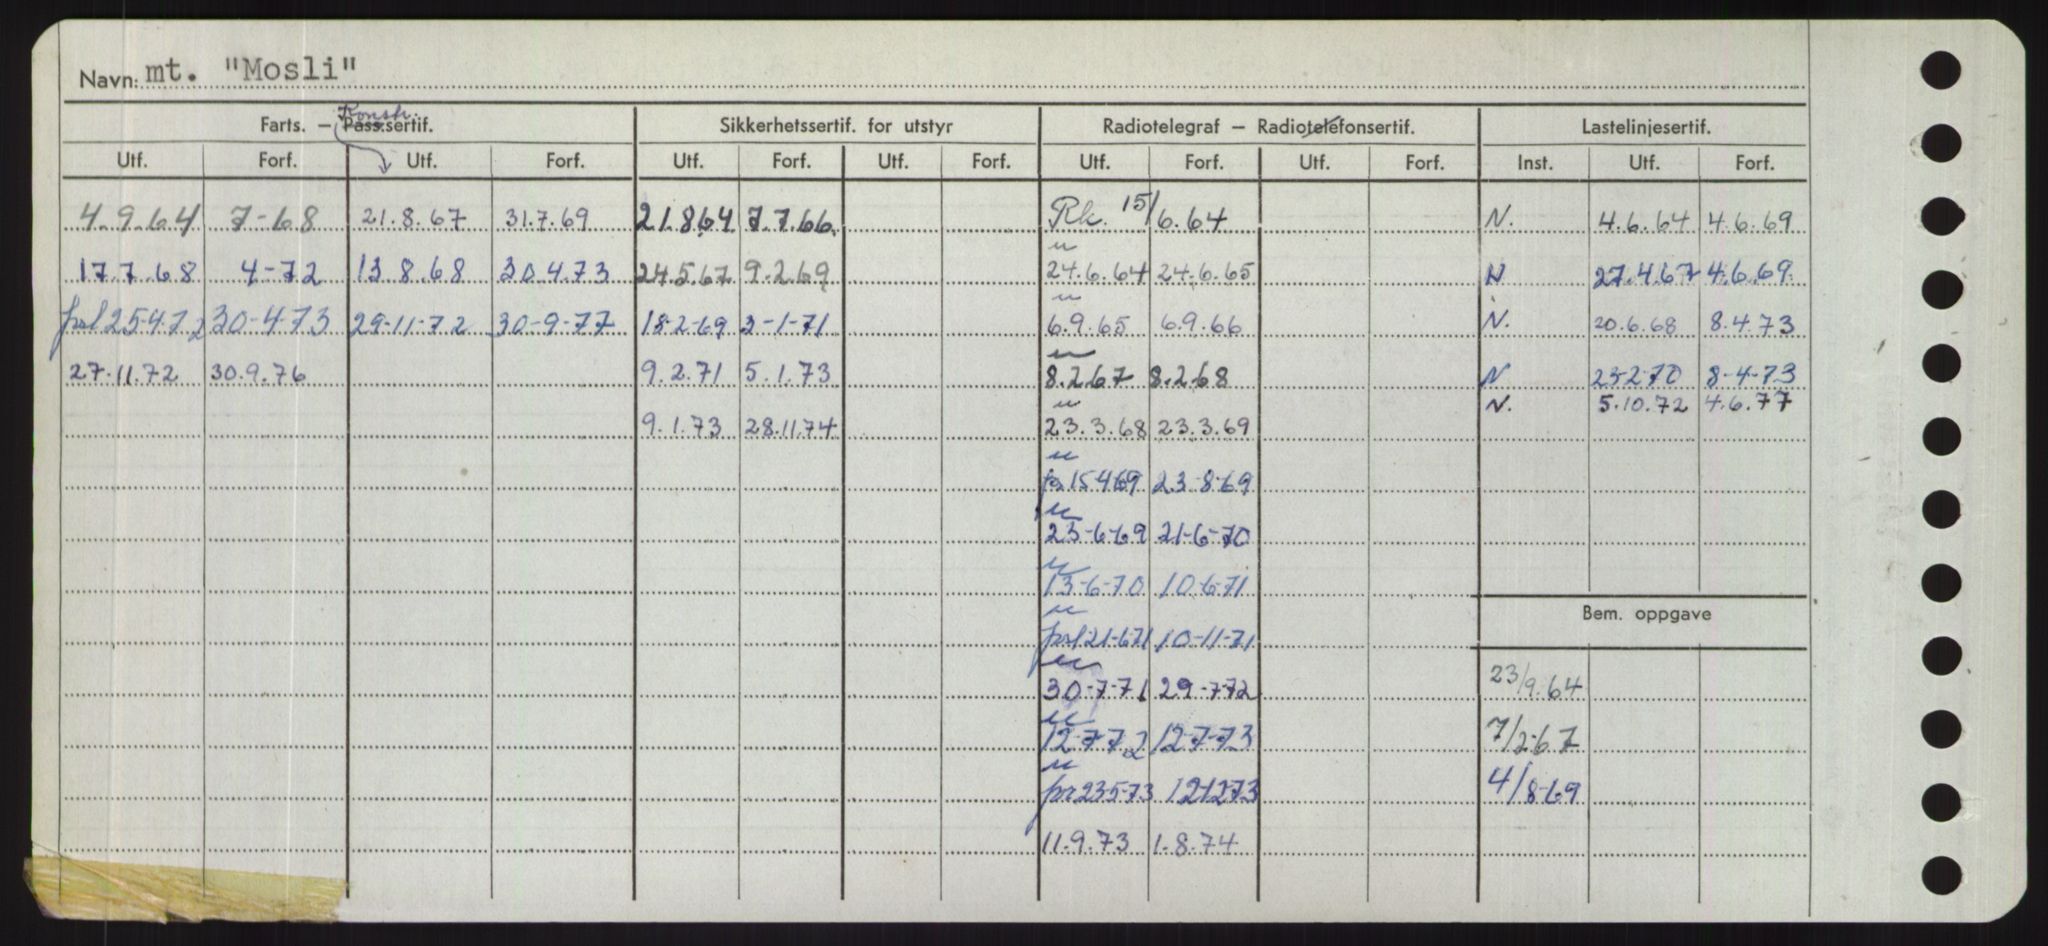 Navn: mt. "Mosli"
Konstr.
Farts. – Pass.sertif. Sikkerhetssertif. for utstyr Radiotelegraf – Radiotelefonsertif. Lastelinjesertif.
Utf. Forf. Utf. Forf. Utf. Forf. Utf. Forf. Utf. Forf. Utf. Forf. Inst. Utf. Forf.
4.9.64 7-68 21.8.67 31.7.69 21.8.64 7.7.66 Rk. 15/6.64 N. 4.6.64 4.6.69
17.7.68 4-72 13.8.68 30.4.73 24.5.67 9.2.69 " 24.6.64 24.6.65 N 27.4.67 4.6.69
forl 25-4-72 30-4-73 29-11-72 30-9-77 18-2-69 3-1-71 " 6.9.65 6.9.66 N. 20.6.68 8.4.73
27.11.72 30.9.76 9.2.71 5.1.73 " 8.2.67 8.2.68 N 23-2-70 8-4-73
N. 5.10.72 4.6.77
9.1.73 28.11.74 " 23.3.68 23.3.69
" 15-4-69 23-8-69
" 23-6-69 21-6-70
" 13-6-70 10-6-71
Bem. oppgave
" forl 21-6-71 10-11-71
" 30-7-71 29-7-72 23/9.64
" 12-7-72 12-7-73 7/2-67
" for 23-5-73 12-12-73 4/8-69
11.9.73 1.8.74